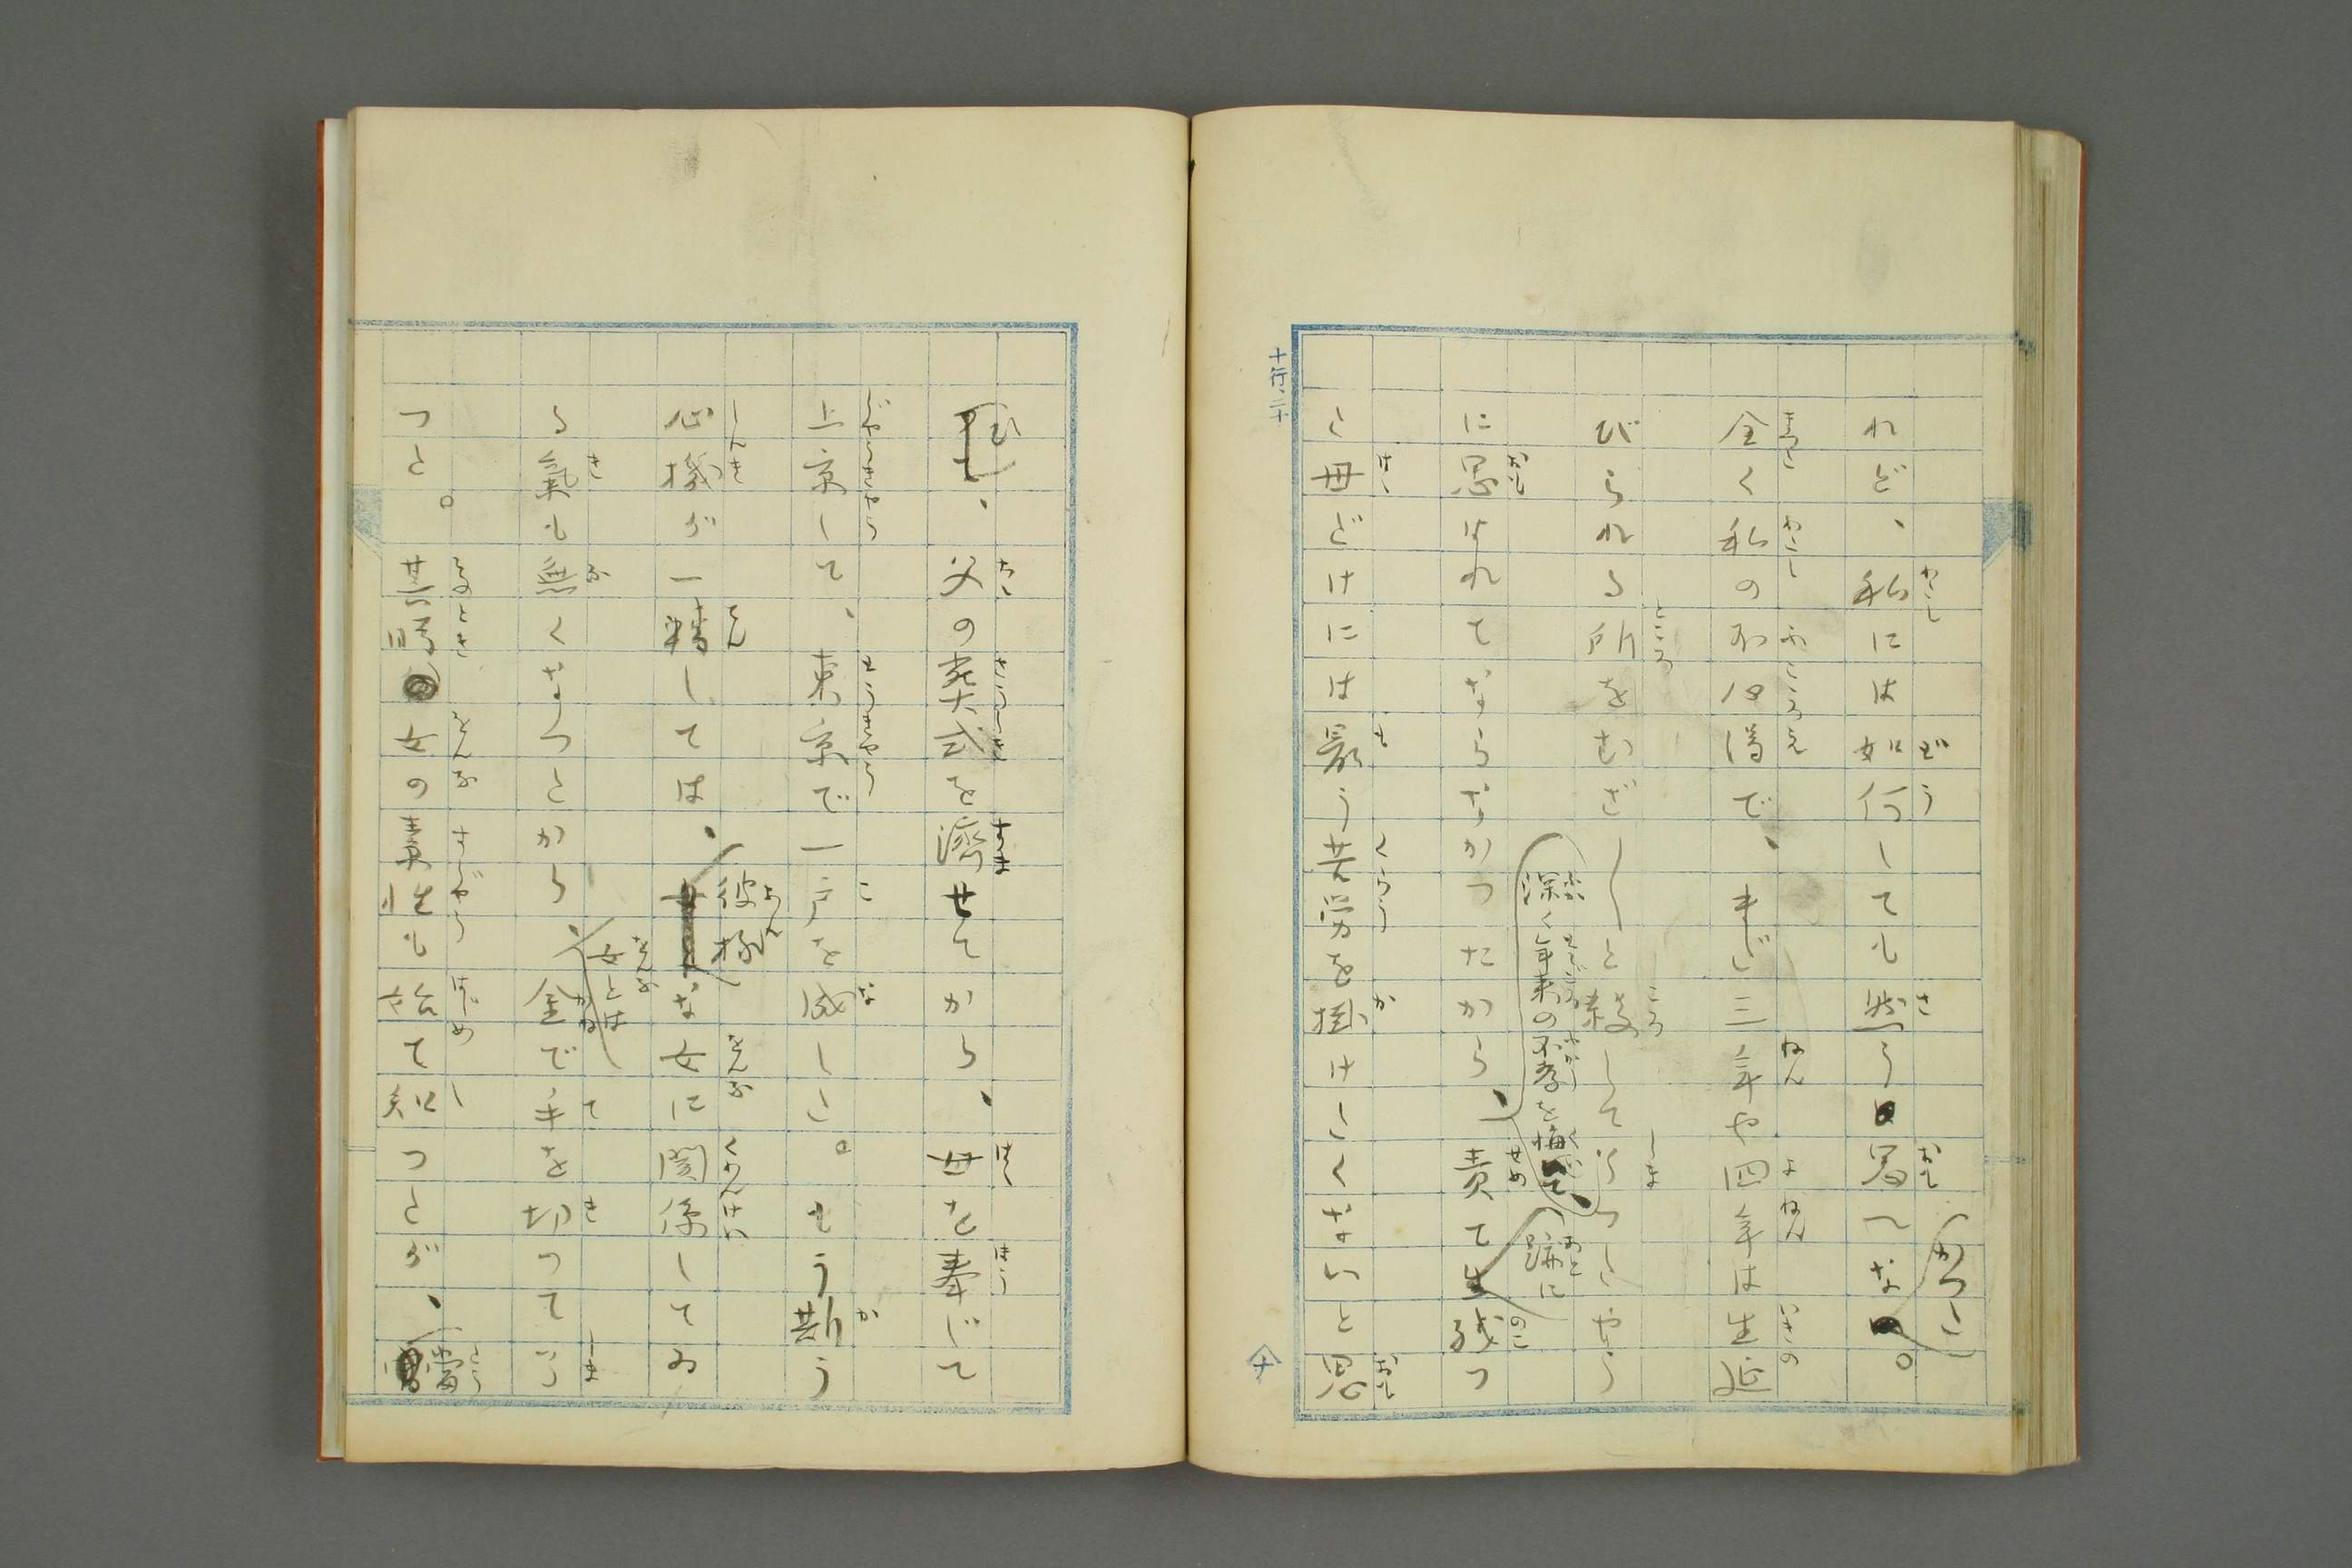 れど、私には如何しても然う思へなかつた。
全く私の不心得で、まだ三年や四年は生延
びられる所をむざ〳〵と殺して了つたやう
に思はれてならなかつたから、
深く年来の不孝を悔いて、
責て跡に残つ
た母だけには最う苦労を掛けたくないと思
ひ、父の葬式を済せてから、母を奉じて
上京して、東京で一戸を成した。もう斯う
心機が一転しては、彼様な女に関係してゐ
る気も無くなつたから、女とは金で手を切つて了
つた。其時女の素性も始て知つたが、当
十行二十